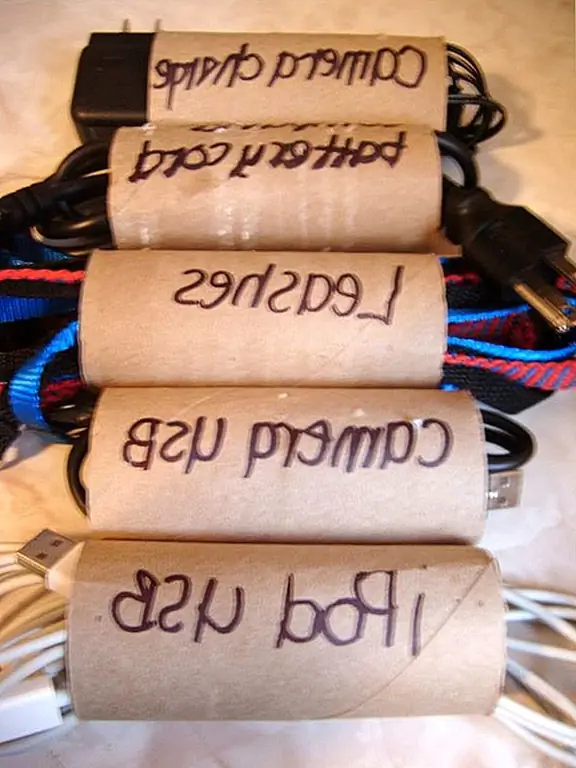 Camera charge
battery cord
Leashes
Camera USB
iPod USB